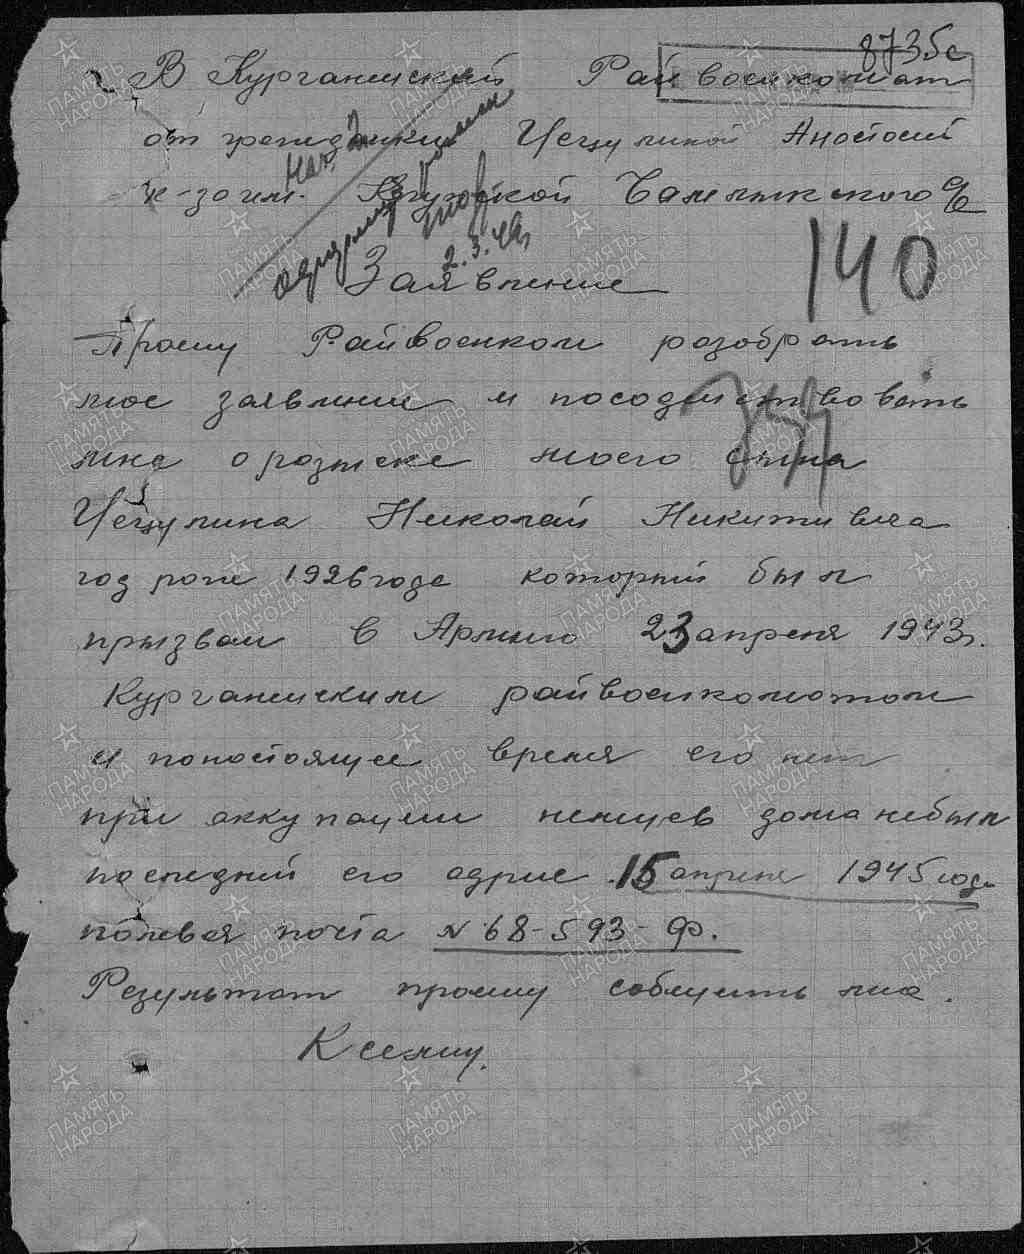 8735с
В Курганинский Райвоенкомат
от гражданки Чечулиной Анастасии
к-за им. Чамлыкского
2.3.49г
Заявление
140
Прошу Райвоенком разобрать
мое заявление и посодействовать
мне о розыске моего сына
Чечулина Николай Никитивича
год рож 1926 года который был
призван в Армию 23 апреля 1943г.
Курганинским райвоенкоматом
и понастоящее время его нет
при аккупации немцев дома небыл
последний его адрис 15 апреля 1945 года
полевая почта № 68-593-Ф.
Результат прошу собщить мне.
ПАМЯТЬ НАРОДА